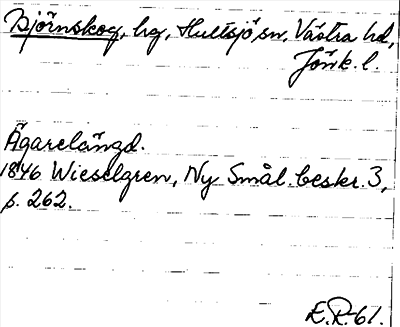 Björnskog, hg, Hultsjö sn, Västra hd,
Jönk. l.
Ägarelängd.
1846 Wieselgren, Ny Smål. beskr. 3,
s. 262.
E.R-61.